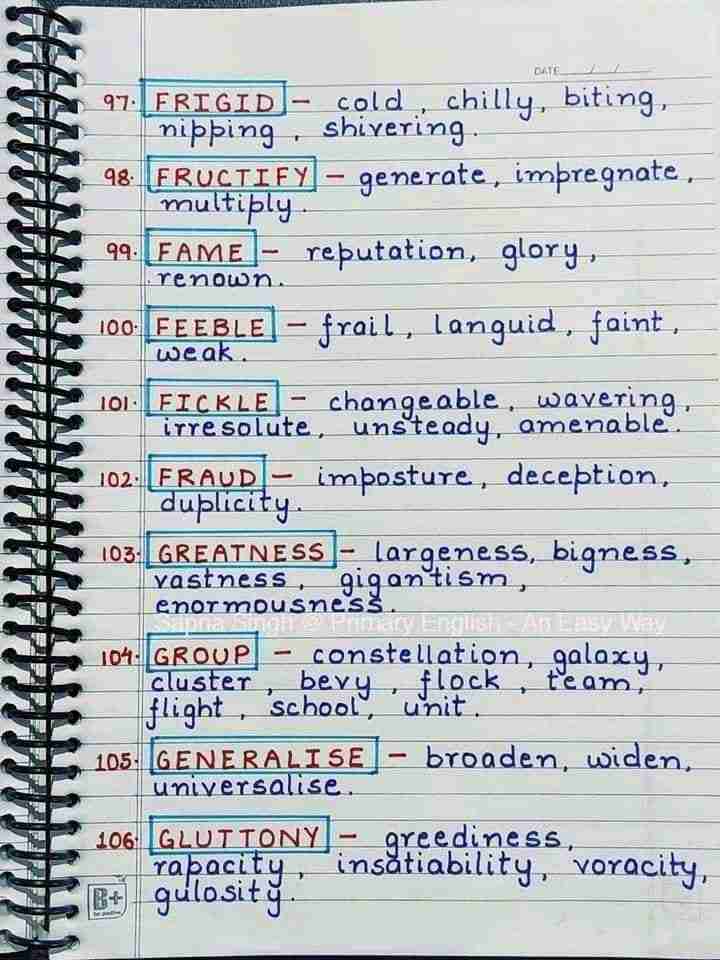 DATE __/__/__
97. FRIGID – cold, chilly, biting,
nipping, shivering.
98. FRUCTIFY – generate, impregnate,
multiply.
99. FAME – reputation, glory,
renown.
100. FEEBLE – frail, languid, faint,
weak.
101. FICKLE – changeable, wavering,
irresolute, unsteady, amenable.
102. FRAUD – imposture, deception,
duplicity.
103. GREATNESS – largeness, bigness,
vastness, gigantism,
enormousness.
Sapna Singh @ Primary English - An Easy Way
104. GROUP – constellation, galaxy,
cluster, bevy, flock, team,
flight, school, unit.
105. GENERALISE – broaden, widen,
universalise.
106. GLUTTONY – greediness,
rapacity, insatiability, voracity,
gulosity.
B+
be positive